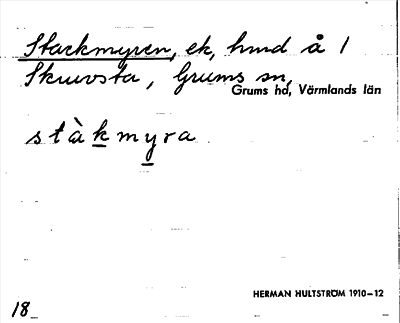 Stackmyren, ek, hmd å 1
Skruvsta, Grums sn,
Grums hd, Värmlands län
stàkmyra
HERMAN HULTSTRÖM 1910–12
18